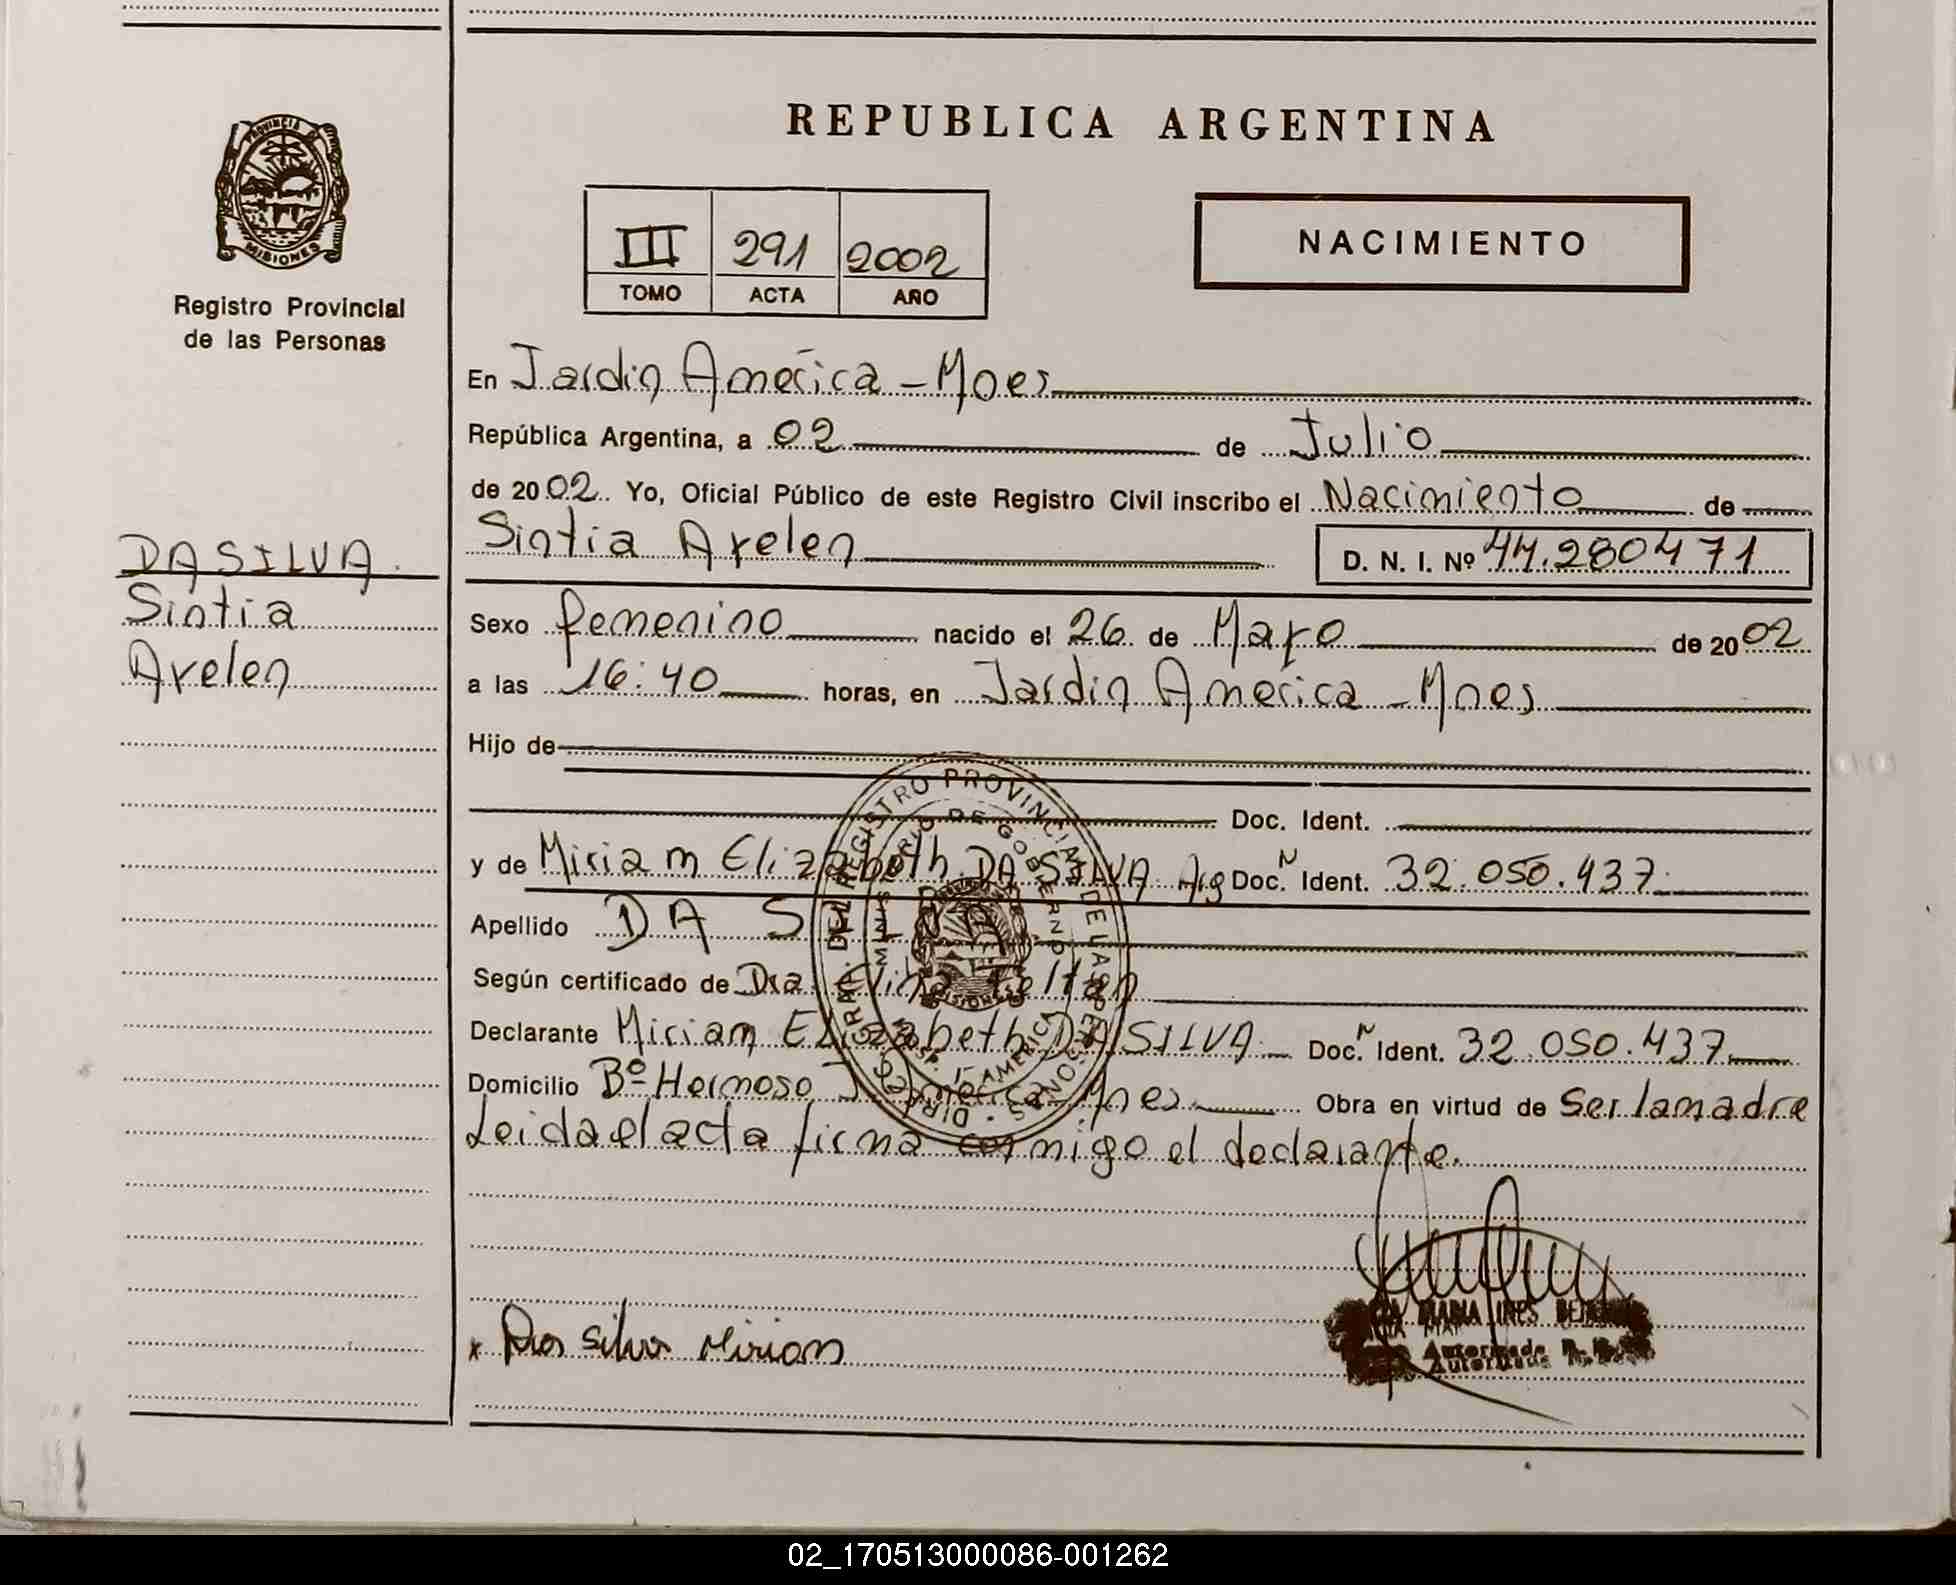 REPUBLICA ARGENTINA
PROVINCIA DE
MISIONES
Registro Provincial
de las Personas
III 291 2002
TOMO ACTA AÑO
NACIMIENTO
En Jardin América - Mnes
República Argentina, a 02 de Julio
de 2002 Yo, Oficial Público de este Registro Civil inscribo el Nacimiento de
Sintia Arelen D. N. I. Nº 44.280471
DA SILVA.
Sintia
Arelen
Sexo femenino nacido el 26 de Marzo de 2002
a las 16:40 horas, en Jardin América - Mnes
Hijo de
Doc. Ident.
y de Miriam Elizabeth DA SILVA Arg Doc. N Ident. 32.050.437
Apellido DA SILVA
Según certificado de Dra.
Declarante Miriam Elizabeth DA SILVA Doc. N Ident. 32.050.437
Domicilio Bº Hermoso J. América Mnes Obra en virtud de Ser la madre
Leida el acta firma conmigo el declarante.
REGISTRO PROVINCIAL DE LAS PERSONAS
MINISTERIO DE GOBIERNO
AMERICA
x Da silva Miriam
MARIA INES
Autorizada
02_170513000086-001262